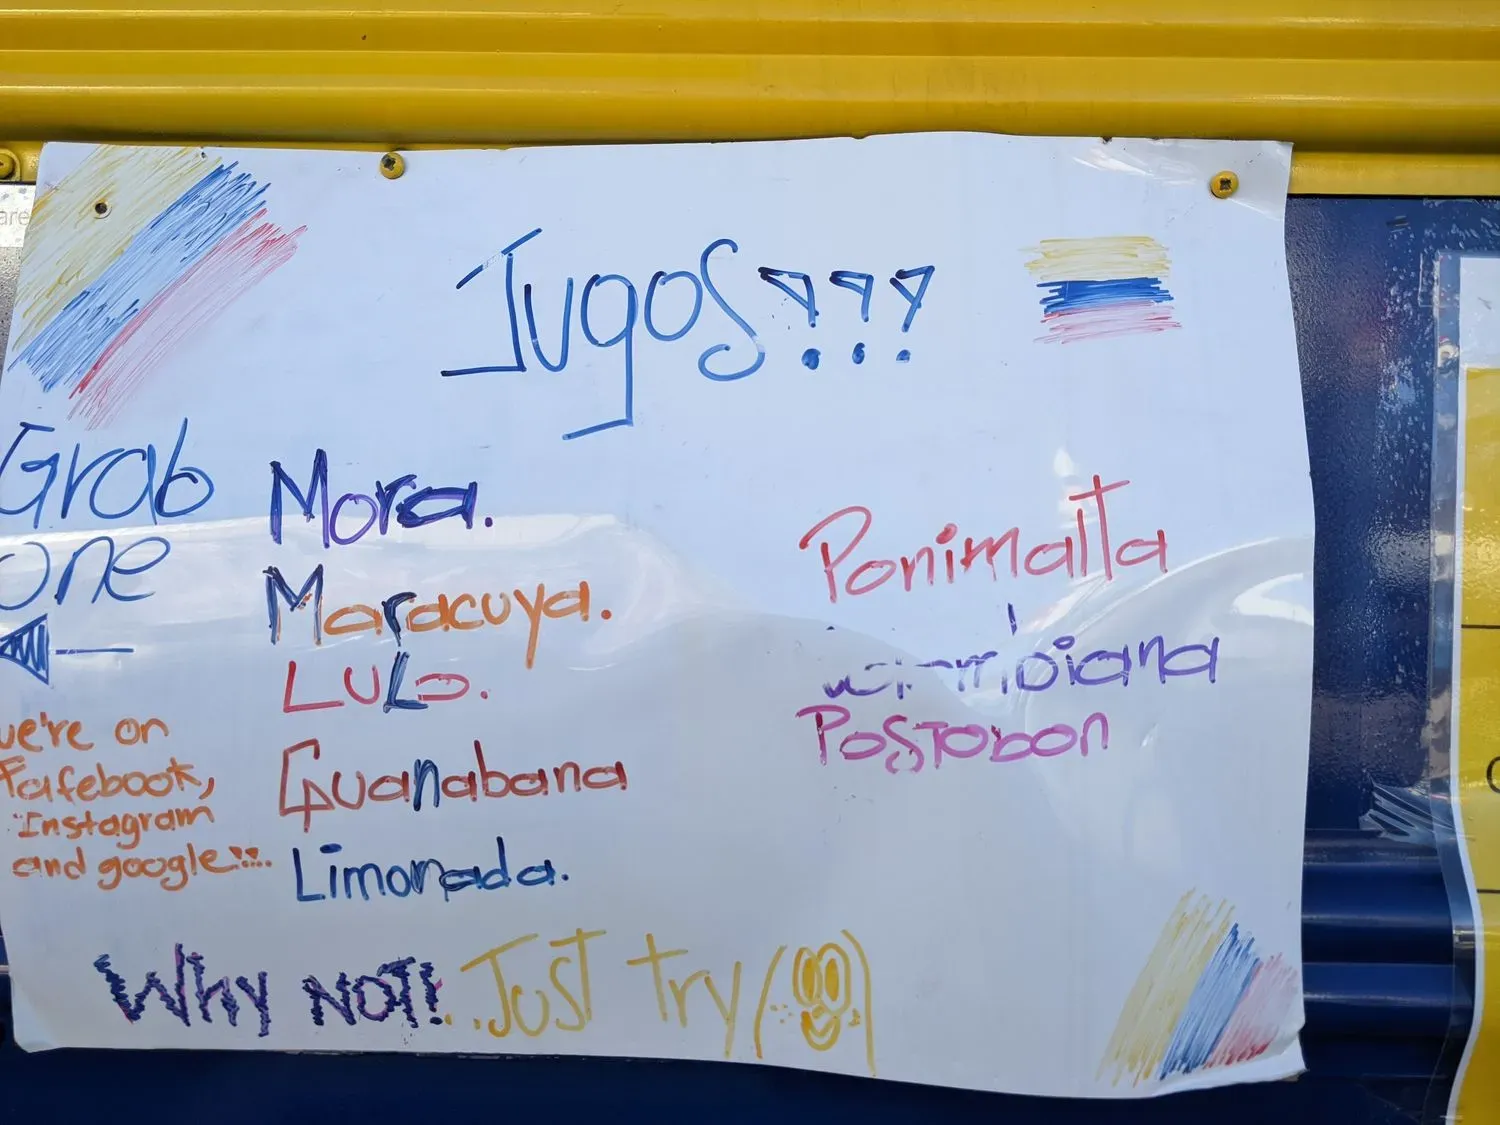 Jugos???
Grab
one
we're on
Fafebook,
Instagram
and google...
Mora.
Maracuya.
LULO.
Guanabana
Limonada.
Ponimalta
Postobon
Why NOT!...Just try